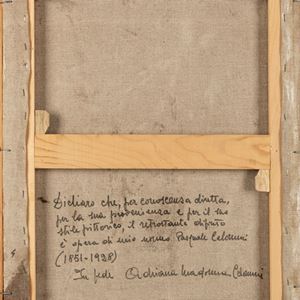 Dichiaro che, per conoscenza diretta,
per la sua provenienza e per il suo
stile pittorico, il retrostante dipinto
è opera di mio nonno Pasquale Celommi
(1851-1928)
In fede Adriana Madonna Celommi